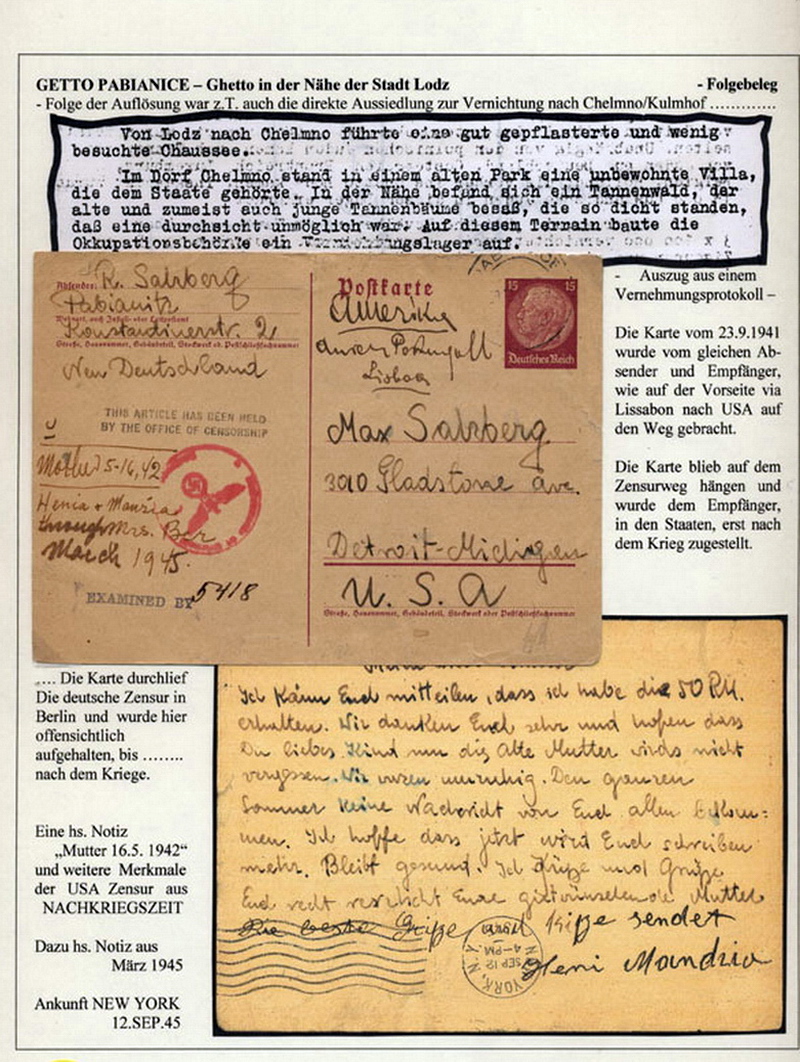 GETTO PABIANICE – Ghetto in der Nähe der Stadt Lodz - Folgebeleg
- Folge der Auflösung war z.T. auch die direkte Aussiedlung zur Vernichtung nach Chelmno/Kulmhof .............
Von Lodz nach Chelmno führte eine gut gepflasterte und wenig
besuchte Chaussee.
Im Dorf Chelmno stand in einem alten Park eine unbewohnte Villa,
die dem Staate gehörte. In der Nähe befand sich ein Tannenwald, der
alte und zumeist auch junge Tannenbäume besaß, die so dicht standen,
daß eine durchsicht unmöglich war. Auf diesem Terrain baute die
Okkupationsbehörde ein Vernichtungslager auf.
- Auszug aus einem
Vernehmungsprotokoll –
Die Karte vom 23.9.1941
wurde vom gleichen Ab-
sender und Empfänger,
wie auf der Vorseite via
Lissabon nach USA auf
den Weg gebracht.
Die Karte blieb auf dem
Zensurweg hängen und
wurde dem Empfänger,
in den Staaten, erst nach
dem Krieg zugestellt.
Absender: R. Salzberg
Pabianitz
Wohnort, auch Zustell- oder Leitpostamt
Konstantinerstr. 2
Straße, Hausnummer, Gebäudeteil, Stockwerk od. Postschließfachnummer
Neu Deutschland
THIS ARTICLE HAS BEEN HELD
BY THE OFFICE OF CENSORSHIP
Mother 5-16,42
Henia + Maurica
through Mrs. Ber
March 1945.
EXAMINED BY 5418
Postkarte
15 15
Deutsches Reich
Amerika
durch Portugall
Lisboa
Max Salzberg
3010 Gladstone ave.
Detroit-Michigen
U. S. A
Straße, Hausnummer, Gebäudeteil, Stockwerk oder Postschließfachnummer
.... Die Karte durchlief
Die deutsche Zensur in
Berlin und wurde hier
offensichtlich
aufgehalten, bis ........
nach dem Kriege.
Eine hs. Notiz
„Mutter 16.5. 1942“
und weitere Merkmale
der USA Zensur aus
NACHKRIEGSZEIT
Dazu hs. Notiz aus
März 1945
Ankunft NEW YORK
12.SEP.45
Ich kann Euch mitteilen, dass ich habe die 50 RM.
erhalten. Wir danken Euch sehr und hofen dass
Du liebes Kind nun die alte Mutter wirds nicht
vergessen. Wir waren unruhig. Den ganzen
Sommer keine Nachricht von Euch allen bekom-
men. Ich hoffe dass jetzt wird Euch schreiben
mehr. Bleibt gesund. Ich Grüße und
Euch recht Eure Mutter
Die beste Grüße und Küsse sendet
Heni
YORK,
SEP 12
4-PM